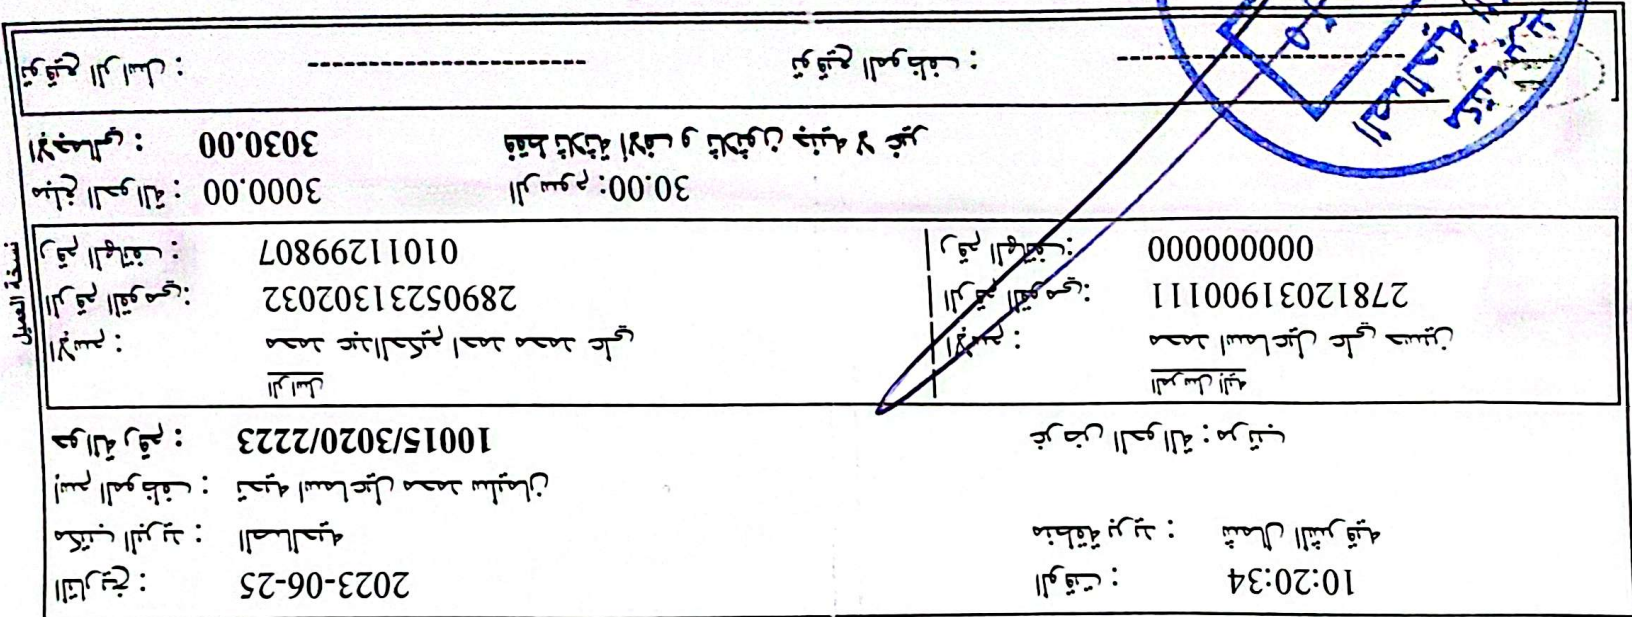 التاريخ : 2023-06-25 الوقت : 10:20:34
مكتب البريد : الصالحيه منطقة بريد : شمال الشرقيه
إسم الموظف : تحيه اسماعيل محمد سليمان
حوالة رقم : 10015/3020/2223 غرض الحوالة : مرتب
الراسل المرسل إليه
الإسم : محمد عبدالحكيم احمد محمد علي الإسم : محمد اسماعيل علي حسين
الرقم القومي : 28905231302032 الرقم القومي : 27812031900111
رقم الهاتف : 01011299807 رقم الهاتف : 00000000000
نسخة العميل
مبلغ الحوالة : 3000.00 الرسوم : 30.00
الإجمالي : 3030.00 فقط ثلاثة الاف و ثلاثون جنيه لا غير
توقيع الراسل : توقيع الموظف :